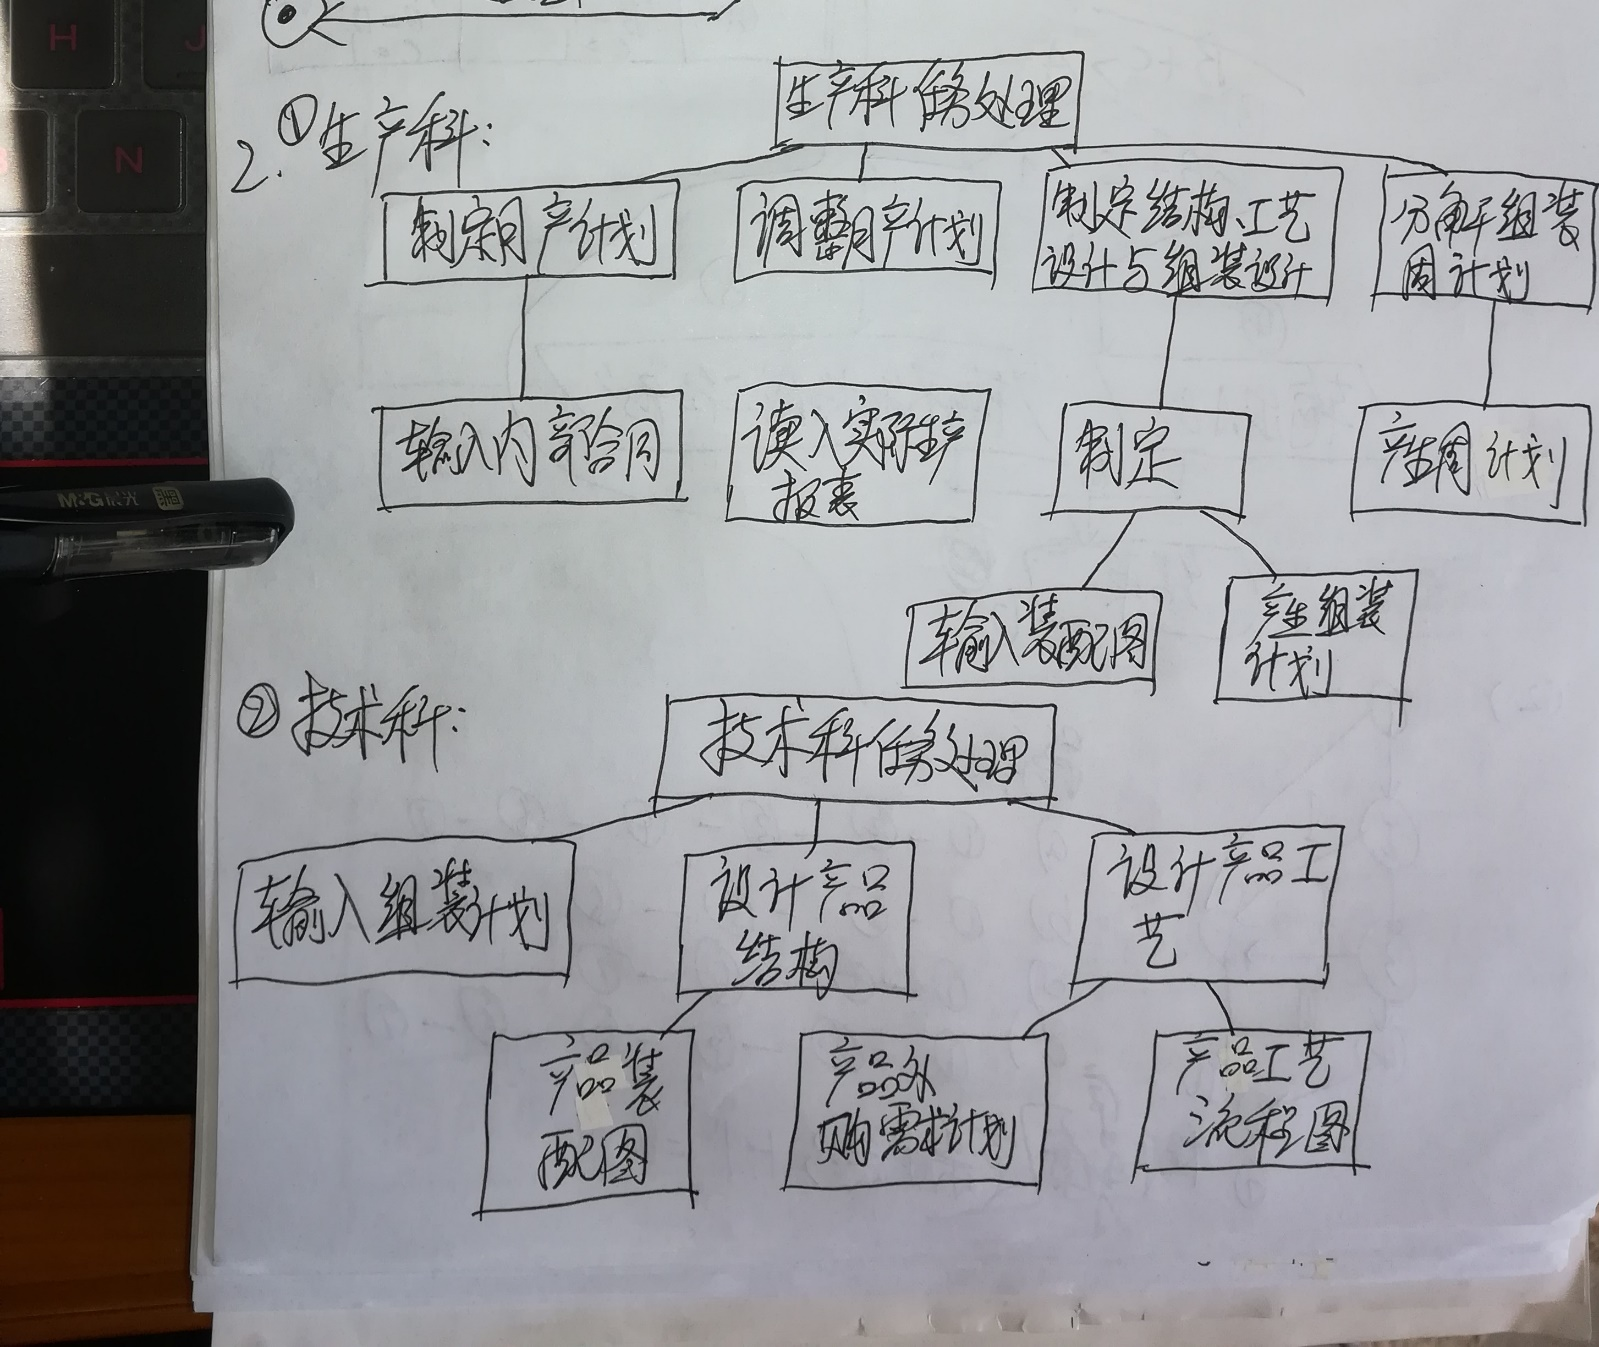 H
J
N
M&G晨光
2. ①生产科:
生产科任务处理
制定月产计划
调整月产计划
制定结构、工艺
设计与组装设计
分解组装
周计划
输入内部合同
读入实际生产
报表
制定
产生周计划
输入装配图
产生组装
计划
②技术科:
技术科任务处理
输入组装计划
设计产品
结构
设计产品工
艺
产品装
配图
产品外
购需求计划
产品工艺
流程图